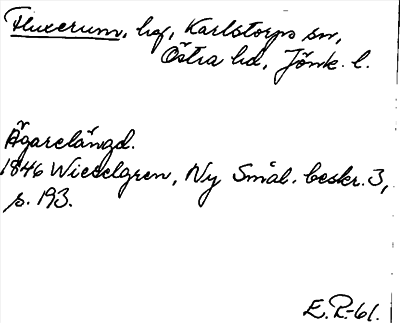 Fluxerum, hg, Karlstorps sn,
Östra hd, Jönk. l.
Ägarelängd.
1846 Wieselgren, Ny Smål. beskr. 3,
s. 193.
E.R-61.